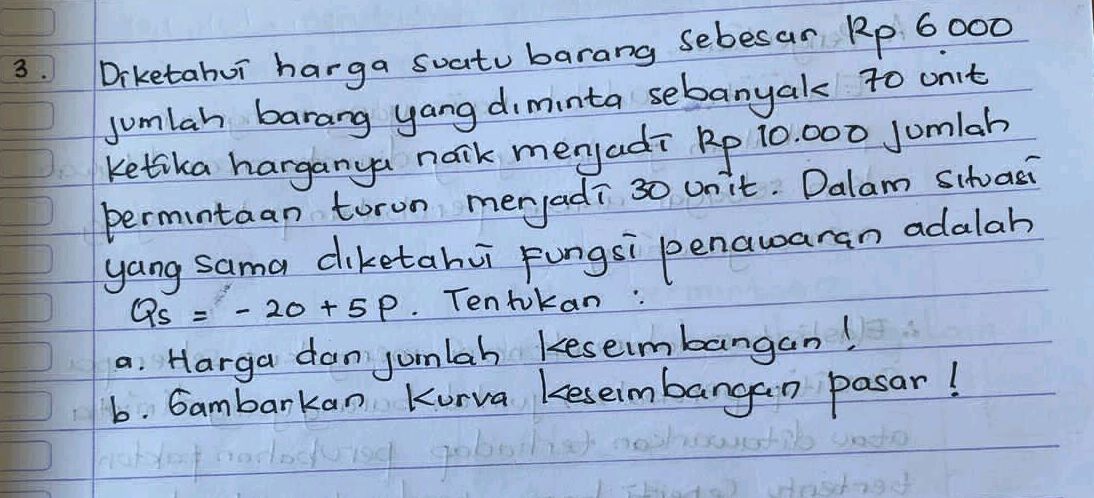 3. Diketahui harga suatu barang sebesar Rp 6 000
jumlah barang yang diminta sebanyak 70 unit
ketika harganya naik menjadi Rp 10.000 jumlah
permintaan turun menjadi 30 unit. Dalam situasi
yang sama diketahui Fungsi penawaran adalah
Qs = - 20 + 5P. Tentukan :
a. Harga dan jumlah keseimbangan !
b. Gambarkan Kurva keseimbangan pasar !